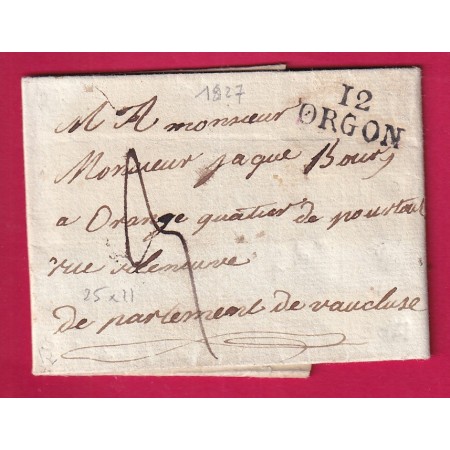 1827
12
ORGON
M A monsieur
Monsieur jaque Bour
a Orange quatier de pourtoul
rue vileneuve
25 x 21
de partement de vaucluse